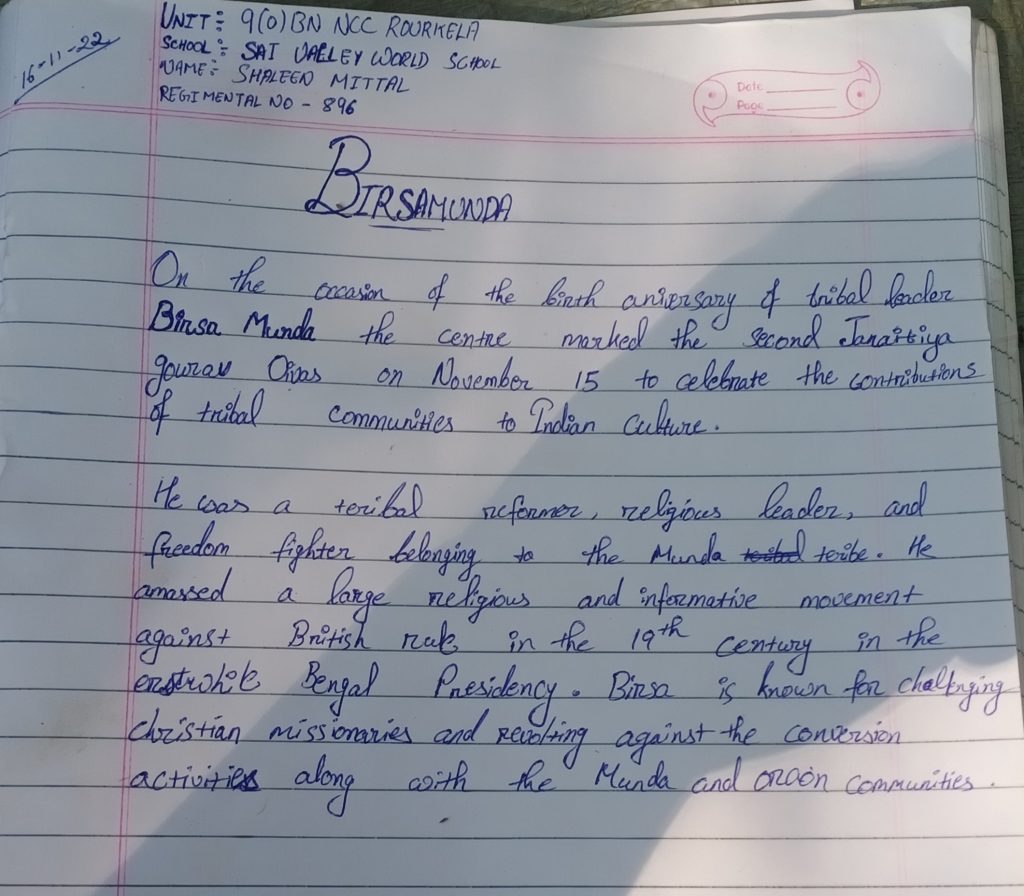 16-11-22
UNIT:- 9(O)BN NCC ROURKELA
SCHOOL:- SAI VALLEY WORLD SCHOOL
NAME:- SHALEEN MITTAL
REGIMENTAL NO - 896
Date
Page
BIRSAMUNDA
On the occasion of the birth aniversary of tribal leader
Birsa Munda the centre marked the second Janaitiya
gourav Divas on November 15 to celebrate the contributions
of tribal communities to Indian Culture.
He was a teribal reformer, religious leader, and
freedom fighter belonging to the Munda teribe. He
amassed a large religious and informative movement
against British rule in the 19th century in the
erstwhile Bengal Presidency. Birsa is known for challenging
christian missionaries and revolting against the conversion
activities along with the Munda and oraon communities.